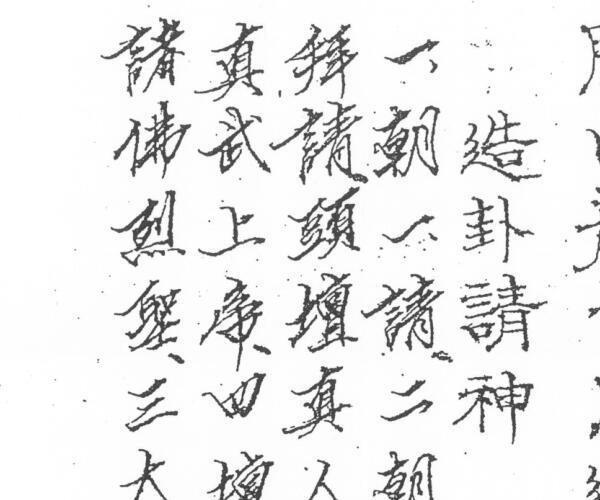 造卦請神
一朝一請二朝
拜請頭壇真人
真武上帝四壇
諸佛烈聖三大